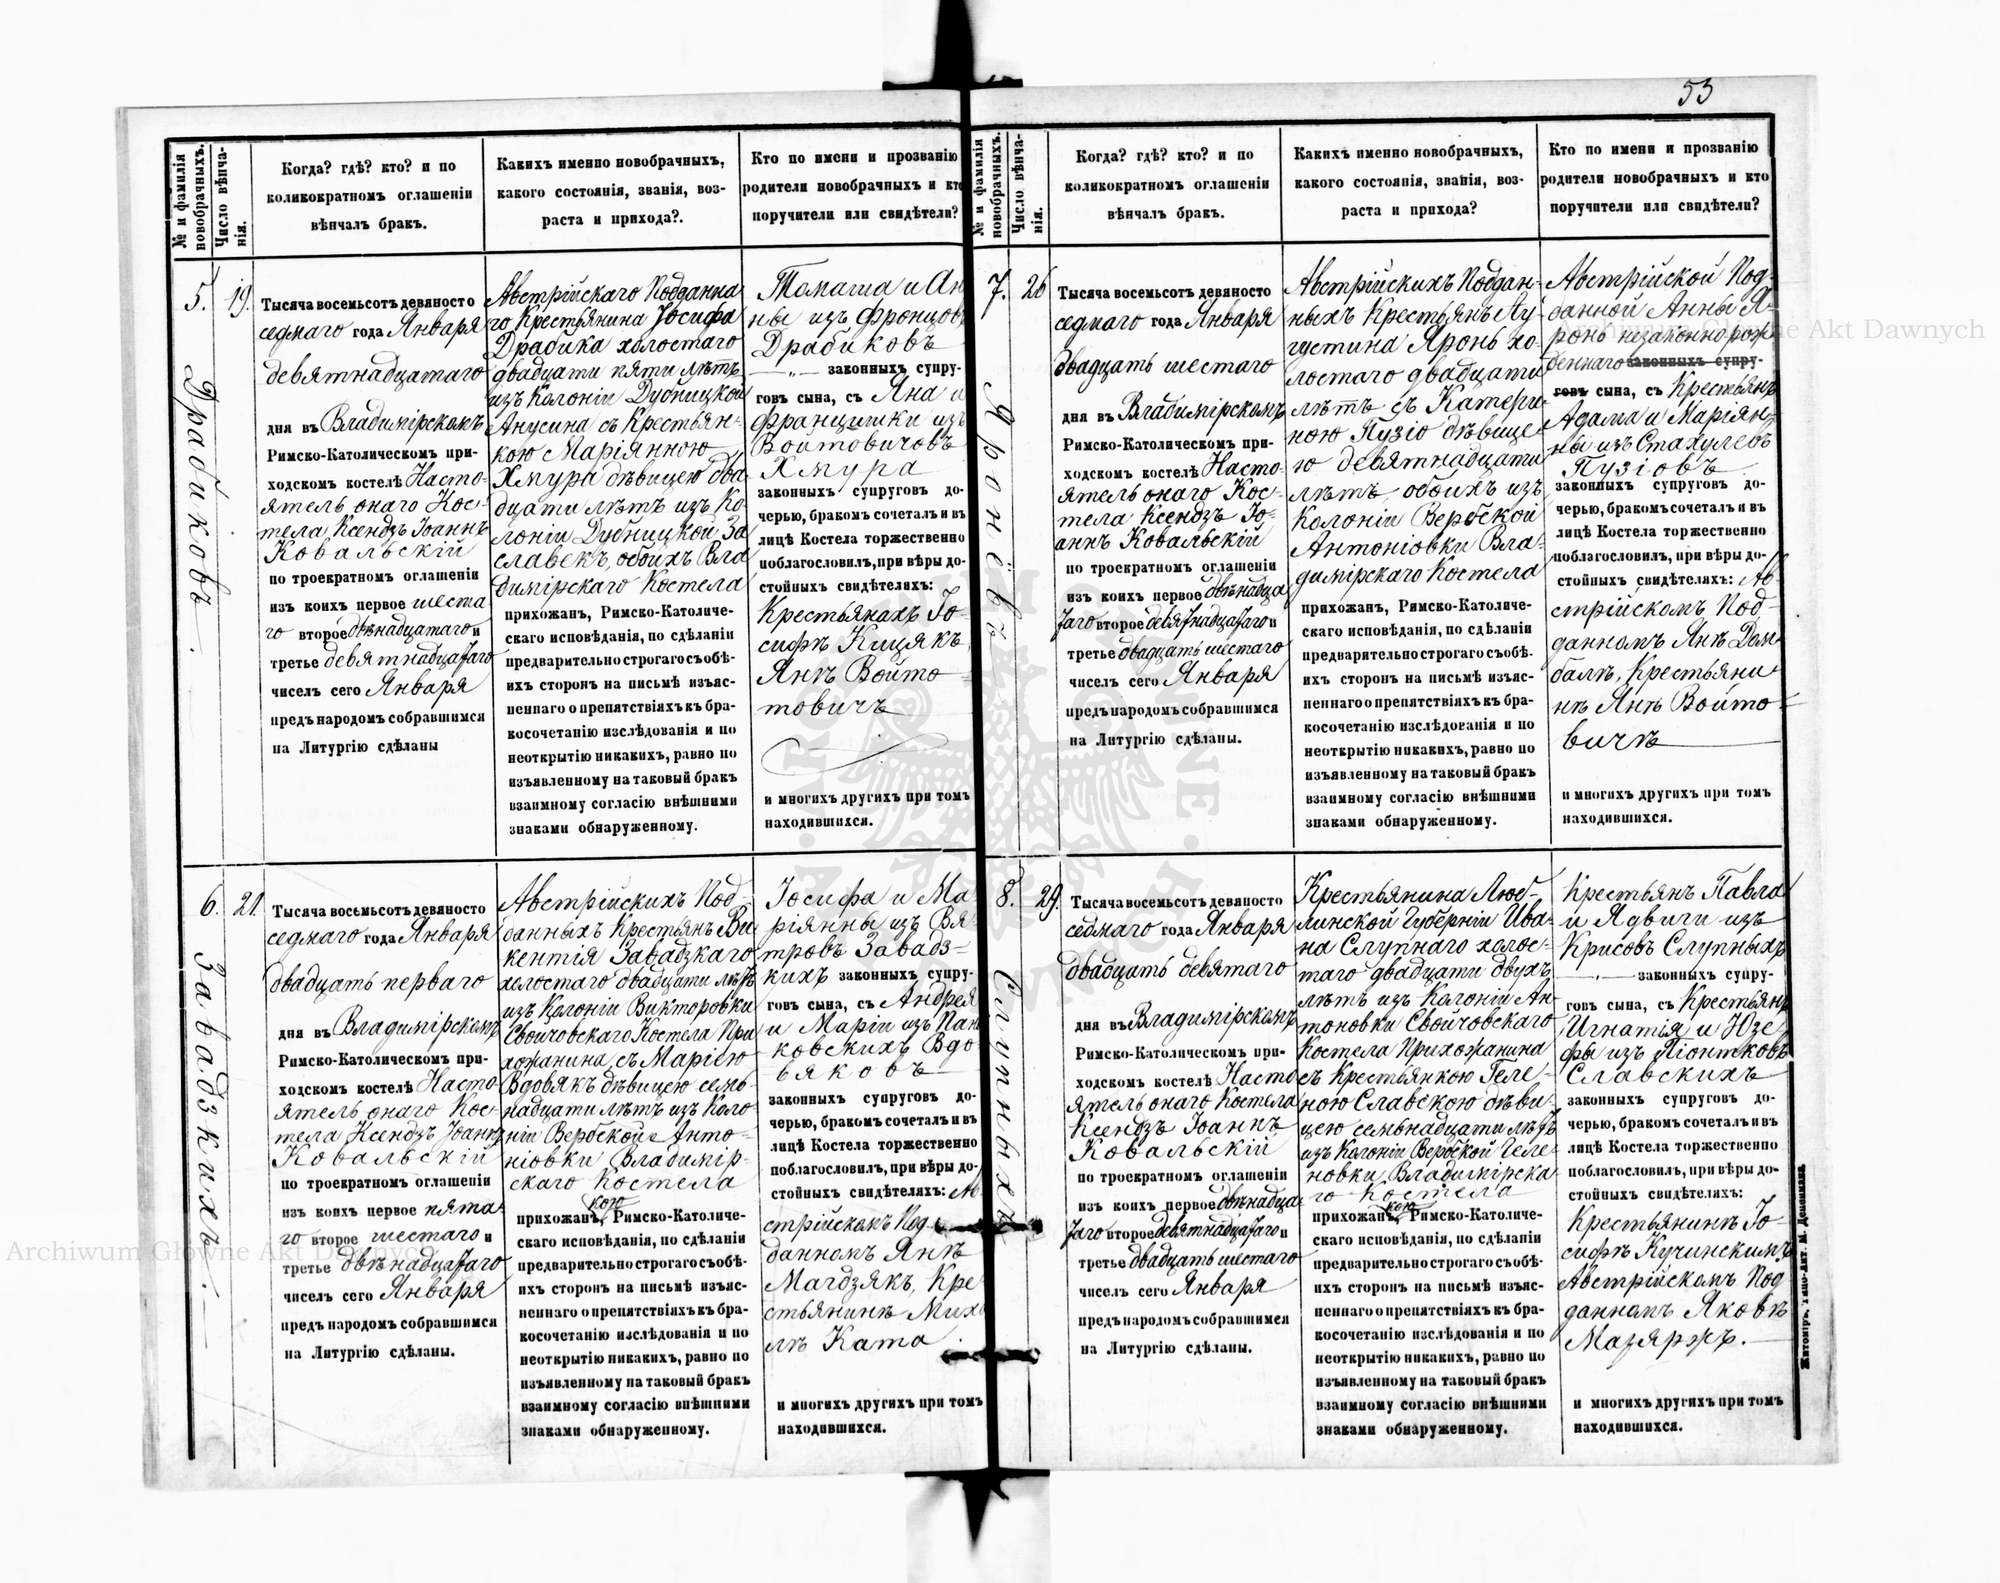 53
№ и фамилія
новобрачныхъ.
Число вѣнча-
нія.
Когда? гдѣ? кто? и по
коликократномъ оглашеніи
вѣнчалъ бракъ.
Какихъ именно новобрачныхъ,
какого состоянія, званія, воз-
раста и прихода?.
Кто по имени и прозванію
родители новобрачныхъ и кто
поручители или свидѣтели?
5.
Драбиковъ
19.
Тысяча восемьсотъ девяносто
седмаго года Января
девятнадцатаго
дня въ Владимірскомъ
Римско-Католическомъ при-
ходскомъ костелѣ Насто-
ятель онаго Кос-
тела Ксендзъ Іоаннъ
Ковальскій
по троекратномъ оглашеніи
изъ коихъ первое шеста
го второе двѣнадцатаго и
третье девятнадцатаго
чиселъ сего Января
предъ народомъ собравшимся
на Литургію сдѣланы
Австрійскаго Подданна
го Крестьянина Іосифа
Драбика холостаго
двадцати пяти лѣтъ
изъ Колоніи Дубницкой
Анусина съ Крестьян-
кою Маріянною
Хмура дѣвицею два
дцати лѣтъ изъ Ко-
лоніи Дубницкой За
славекъ, обоихъ Вла
димірскаго Костела
прихожанъ, Римско-Католиче-
скаго исповѣданія, по сдѣланіи
предварительно строгаго съ обѣ-
ихъ сторонъ на письмѣ изъяс-
неннаго о препятствіяхъ къ бра-
косочетанію изслѣдованія и по
неоткрытію никакихъ, равно по
изъявленному на таковый бракъ
взаимному согласію внѣшними
знаками обнаруженному.
Томаша и Ан
ны изъ Францов
Драбиковъ
законныхъ супру-
говъ сына, съ Яна и
Францишки изъ
Войтовичовъ
Хмура
законныхъ супруговъ до-
черью, бракомъ сочеталъ и въ
лицѣ Костела торжественно
поблагословилъ, при вѣры до-
стойныхъ свидѣтеляхъ:
Крестьянахъ Іо-
сифѣ Кицякъ,
Янѣ Войто
товичъ
и многихъ другихъ при томъ
находившихся.
6.
Завадзкихъ.
21.
Тысяча восемьсотъ девяносто
седмаго года Января
двадцать перваго
дня въ Владимірскомъ
Римско-Католическомъ при-
ходскомъ костелѣ Насто-
ятель онаго Кос-
тела Ксендзъ Іоаннъ
Ковальскій
по троекратномъ оглашеніи
изъ коихъ первое пята
го второе шестаго и
третье двѣнадцатаго
чиселъ сего Января
предъ народомъ собравшимся
на Литургію сдѣланы.
Австрійскихъ Под-
данныхъ Крестьянъ Ви
кентія Завадзкаго
холостаго двадцати лѣтъ
изъ Колоніи Викторовки
Свойчовскаго Костела При
хожанина, съ Маріею
Вдовякъ дѣвицею семь
надцати лѣтъ изъ Коло-
ніи Вербской Анто-
ніовки Владимір-
скаго Костела
кою
прихожанъ, Римско-Католиче-
скаго исповѣданія, по сдѣланіи
предварительно строгаго съ обѣ-
ихъ сторонъ на письмѣ изъяс-
неннаго о препятствіяхъ къ бра-
косочетанію изслѣдованія и по
неоткрытію никакихъ, равно по
изъявленному на таковый бракъ
взаимному согласію внѣшними
знаками обнаруженному.
Іосифа и Ма
ріянны изъ Вя-
тровъ Завадз-
кихъ законныхъ супру-
говъ сына, съ Андрея
и Маріи изъ Пан
ковскихъ Вдо
вяковъ
законныхъ супруговъ до-
черью, бракомъ сочеталъ и въ
лицѣ Костела торжественно
поблагословилъ, при вѣры до-
стойныхъ свидѣтеляхъ: Ав
стрійскомъ Под
данномъ Янѣ
Магдзякъ, Кре
стьянинѣ Миха
лѣ Ката
и многихъ другихъ при томъ
находившихся.
№ и фамилія
новобрачныхъ.
Число вѣнча-
нія.
Когда? гдѣ? кто? и по
коликократномъ оглашеніи
вѣнчалъ бракъ.
Какихъ именно новобрачныхъ,
какого состоянія, званія, воз-
раста и прихода?
Кто по имени и прозванію
родители новобрачныхъ и кто
поручители или свидѣтели?
7.
Яронёвъ
26
Тысяча восемьсотъ девяносто
седмаго года Января
двадцать шестаго
дня въ Владимірскомъ
Римско-Католическомъ при-
ходскомъ костелѣ Насто-
ятель онаго Кос-
тела Ксендзъ Іо-
аннъ Ковальскій
по троекратномъ оглашеніи
изъ коихъ первое двѣнадца
таго второе девятнадцатаго и
третье двадцать шестаго
чиселъ сего Января
предъ народомъ собравшимся
на Литургію сдѣланы.
Австрійскихъ Поддан-
ныхъ Крестьянъ Ау
густина Яронь хо-
лостаго двадцати
лѣтъ съ Катери-
ною Пузіо дѣвице-
ю девятнадцати
лѣтъ, обоихъ изъ
Колоніи Вербской
Антоніовки Вла-
димірскаго Костела
прихожанъ, Римско-Католиче-
скаго исповѣданія, по сдѣланіи
предварительно строгаго съ обѣ-
ихъ сторонъ на письмѣ изъяс-
неннаго о препятствіяхъ къ бра-
косочетанію изслѣдованія и по
неоткрытію никакихъ, равно по
изъявленному на таковый бракъ
взаимному согласію внѣшними
знаками обнаруженному.
Австрійской Под-
данной Анны Я-
ронь незаконнорож
деннаго законныхъ супру-
говъ сына, съ Крестьянъ
Адама и Маріян-
ны изъ Стахулевъ
Пузіовъ
законныхъ супруговъ до-
черью, бракомъ сочеталъ и въ
лицѣ Костела торжественно
поблагословилъ, при вѣры до-
стойныхъ свидѣтеляхъ: Ав-
стрійскомъ Под-
данномъ Янѣ Дом-
балъ, Крестьяни-
нѣ Янѣ Войто-
вичъ
и многихъ другихъ при томъ
находившихся.
8.
Слупныхъ
29.
Тысяча восемьсотъ девяносто
седмаго года Января
двадцать девятаго
дня въ Владимірскомъ
Римско-Католическомъ при-
ходскомъ костелѣ Насто
ятель онаго Костела
Ксендзъ Іоаннъ
Ковальскій
по троекратномъ оглашеніи
изъ коихъ первое двѣнадца
таго второе девятнадцатаго и
третье двадцать шестаго
чиселъ сего Января
предъ народомъ собравшимся
на Литургію сдѣланы.
Крестьянина Люб-
линской Губерніи Ива-
на Слупнаго холос-
таго двадцати двухъ
лѣтъ изъ Колоніи Ан-
тоновки Свойчовскаго
Костела Прихожанина
съ Крестьянкою Геле-
ною Славскою дѣви-
цею семьнадцати лѣтъ
изъ Колоніи Вербской Геле-
новки Владимірска
го Костела
кою
прихожанъ, Римско-Католиче-
скаго исповѣданія, по сдѣланіи
предварительно строгаго съ обѣ-
ихъ сторонъ на письмѣ изъяс-
неннаго о препятствіяхъ къ бра-
косочетанію изслѣдованія и по
неоткрытію никакихъ, равно по
изъявленному на таковый бракъ
взаимному согласію внѣшними
знаками обнаруженному.
Крестьянъ Павла
и Ядвиги изъ
Крисовъ Слупныхъ
законныхъ супру-
говъ сына, съ Крестьянъ
Игнатія и Юзе-
фы изъ Піонтковъ
Славскихъ
законныхъ супруговъ до-
черью, бракомъ сочеталъ и въ
лицѣ Костела торжественно
поблагословилъ, при вѣры до-
стойныхъ свидѣтеляхъ:
Крестьянинѣ Іо-
сифѣ Кучинскимъ
Австрійскомъ Под
данномъ Яковѣ
Мазяржъ.
и многихъ другихъ при томъ
находившихся.
Житоміръ, Типо-Лит. М. Дененмана
Archiwum Główne Akt Dawnych
Archiwum Główne Akt Dawnych